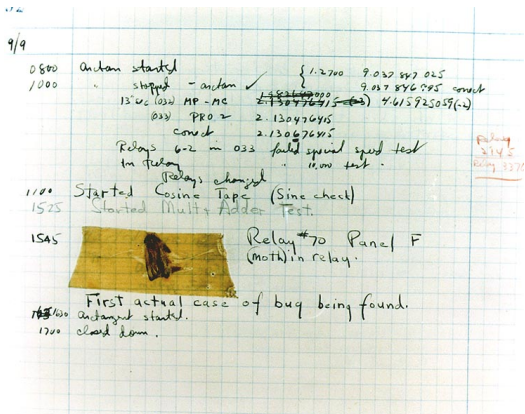 9/9
0800 Antan started { 1.2700 9.037 847 025
1000 " stopped - antan ✓ 9.037 846 995 correct
13"uc (033) MP-MC 2.130476415 (-3) 4.615925059(-2)
(033) PRO 2 2.130476415
correct 2.130676415
Relays 6-2 in 033 failed special speed test
in Relay " 10.000 test.
Relays changed
Relay
2145
Relay 3370
1100 Started Cosine Tape (Sine check)
1525 Started Mult + Adder Test.
1545 Relay #70 Panel F
(Moth) in relay.
First actual case of bug being found.
1630 antangent started.
1700 closed down.